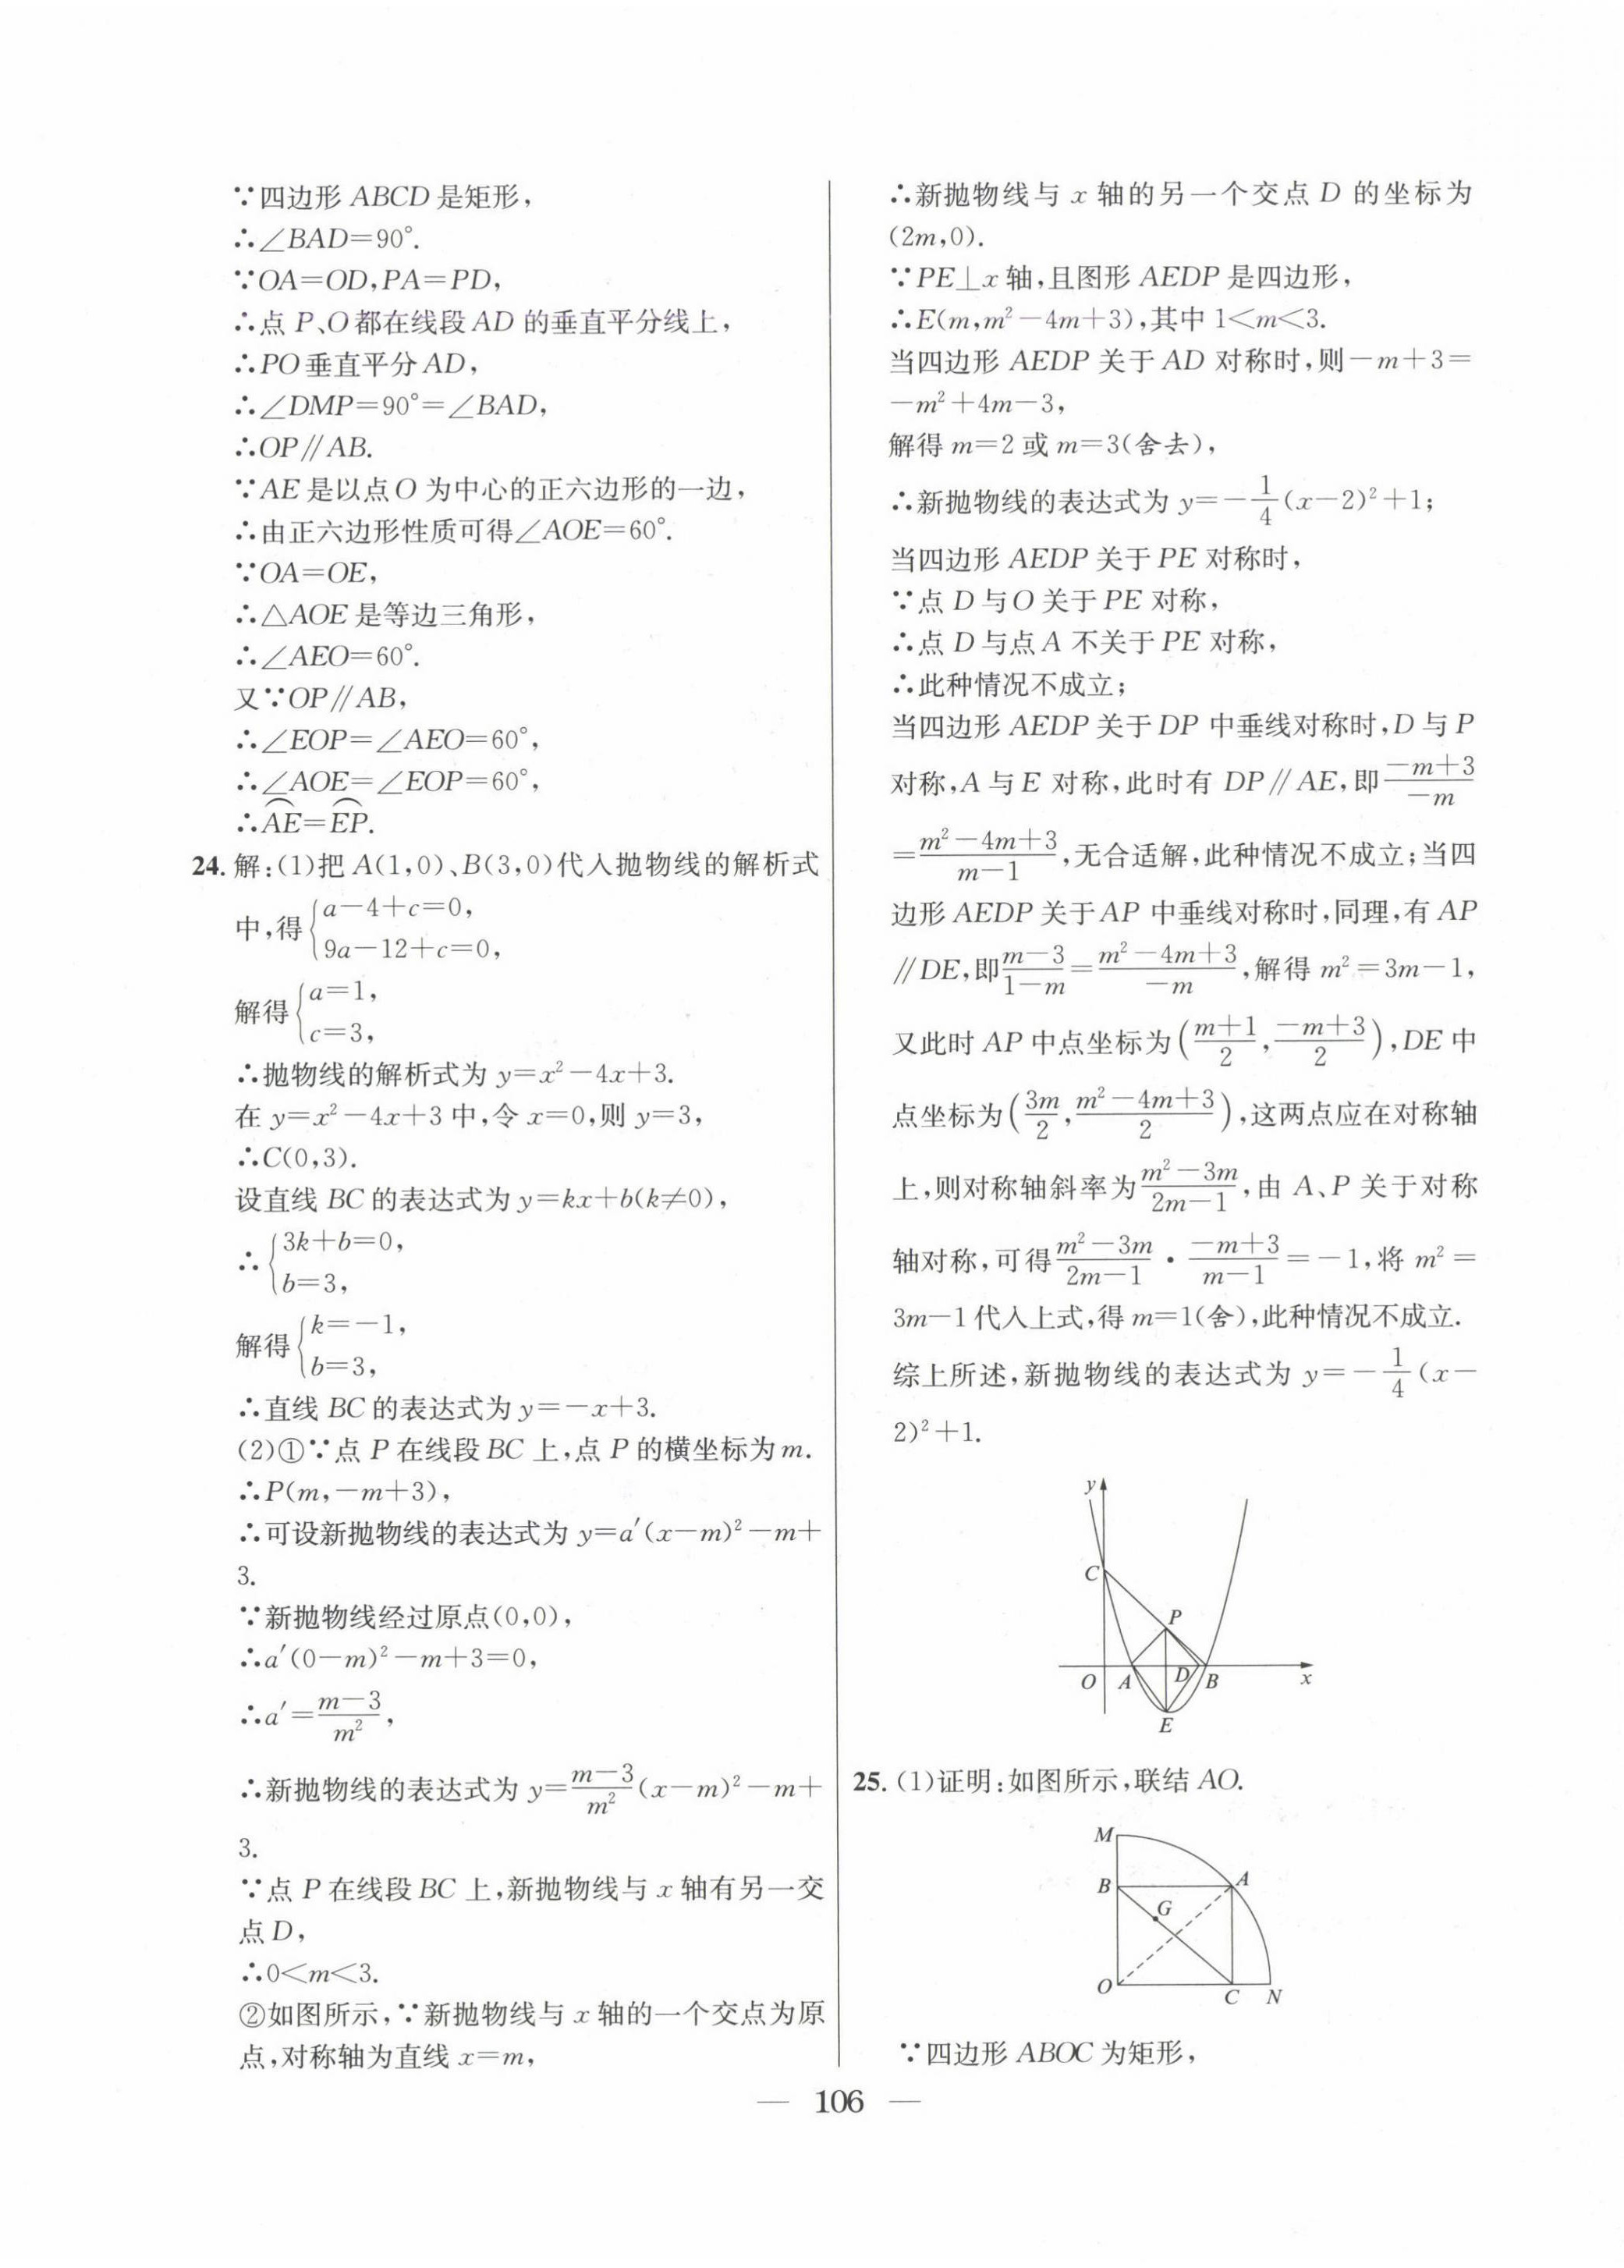 ∵四边形 ABCD 是矩形，
∴∠BAD=90°.
∵OA=OD,PA=PD,
∴点 P、O都在线段 AD 的垂直平分线上，
∴PO 垂直平分 AD,
∴∠DMP=90°=∠BAD,
∴OP∥AB.
∵AE 是以点 O 为中心的正六边形的一边，
∴由正六边形性质可得∠AOE=60°.
∵OA=OE,
∴△AOE 是等边三角形，
∴∠AEO=60°.
又∵OP∥AB,
∴∠EOP=∠AEO=60°,
∴∠AOE=∠EOP=60°,
∴⌒AE=⌒EP.
24. 解:(1)把 A(1,0)、B(3,0)代入抛物线的解析式
中,得{a-4+c=0,
9a-12+c=0,
解得{a=1,
c=3,
∴抛物线的解析式为 y=x²-4x+3.
在 y=x²-4x+3 中,令 x=0,则 y=3,
∴C(0,3).
设直线 BC 的表达式为 y=kx+b(k≠0),
∴{3k+b=0,
b=3,
解得{k=-1,
b=3,
∴直线 BC 的表达式为 y=-x+3.
(2)①∵点 P 在线段 BC 上,点 P 的横坐标为 m.
∴P(m,-m+3),
∴可设新抛物线的表达式为 y=a′(x-m)²-m+
3.
∵新抛物线经过原点(0,0),
∴a′(0-m)²-m+3=0,
∴a′=(m-3)/m²,
∴新抛物线的表达式为 y=(m-3)/m²(x-m)²-m+
3.
∵点 P 在线段 BC 上,新抛物线与 x 轴有另一交
点 D,
∴0<m<3.
②如图所示,∵新抛物线与 x 轴的一个交点为原
点,对称轴为直线 x=m,
∴新抛物线与 x 轴的另一个交点 D 的坐标为
(2m,0).
∵PE⊥x 轴,且图形 AEDP 是四边形，
∴E(m,m²-4m+3),其中 1<m<3.
当四边形 AEDP 关于 AD 对称时,则-m+3=
-m²+4m-3,
解得 m=2 或 m=3(舍去),
∴新抛物线的表达式为 y=-1/4(x-2)²+1;
当四边形 AEDP 关于 PE 对称时，
∵点 D 与 O 关于 PE 对称，
∴点 D 与点 A 不关于 PE 对称，
∴此种情况不成立；
当四边形 AEDP 关于 DP 中垂线对称时,D 与 P
对称,A 与 E 对称,此时有 DP∥AE,即(-m+3)/(-m)
=(m²-4m+3)/(m-1),无合适解,此种情况不成立;当四
边形 AEDP 关于 AP 中垂线对称时,同理,有 AP
∥DE,即(m-3)/(1-m)=(m²-4m+3)/(-m),解得 m²=3m-1,
又此时 AP 中点坐标为((m+1)/2,(-m+3)/2),DE 中
点坐标为(3m/2,(m²-4m+3)/2),这两点应在对称轴
上,则对称轴斜率为(m²-3m)/(2m-1),由 A、P 关于对称
轴对称,可得(m²-3m)/(2m-1)·(-m+3)/(m-1)=-1,将 m²=
3m-1 代入上式,得 m=1(舍),此种情况不成立.
综上所述,新抛物线的表达式为 y=-1/4(x-
2)²+1.
y
C
P
O A D B x
E
25. (1)证明:如图所示,联结 AO.
M
B A
G
O C N
∵四边形 ABOC 为矩形，
— 106 —